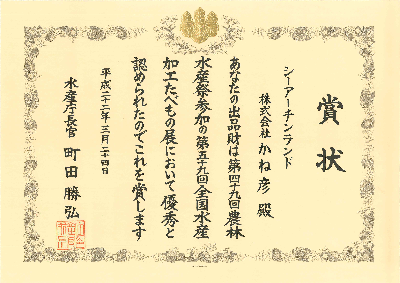 賞状
シーアーチンランド
株式会社かね彦 殿
あなたの出品財は第四十九回農林
水産祭参加の第五十九回全国水産
加工たべもの展において優秀と
認められたのでこれを賞します
平成二十二年三月二十四日
水産庁長官 町田勝弘